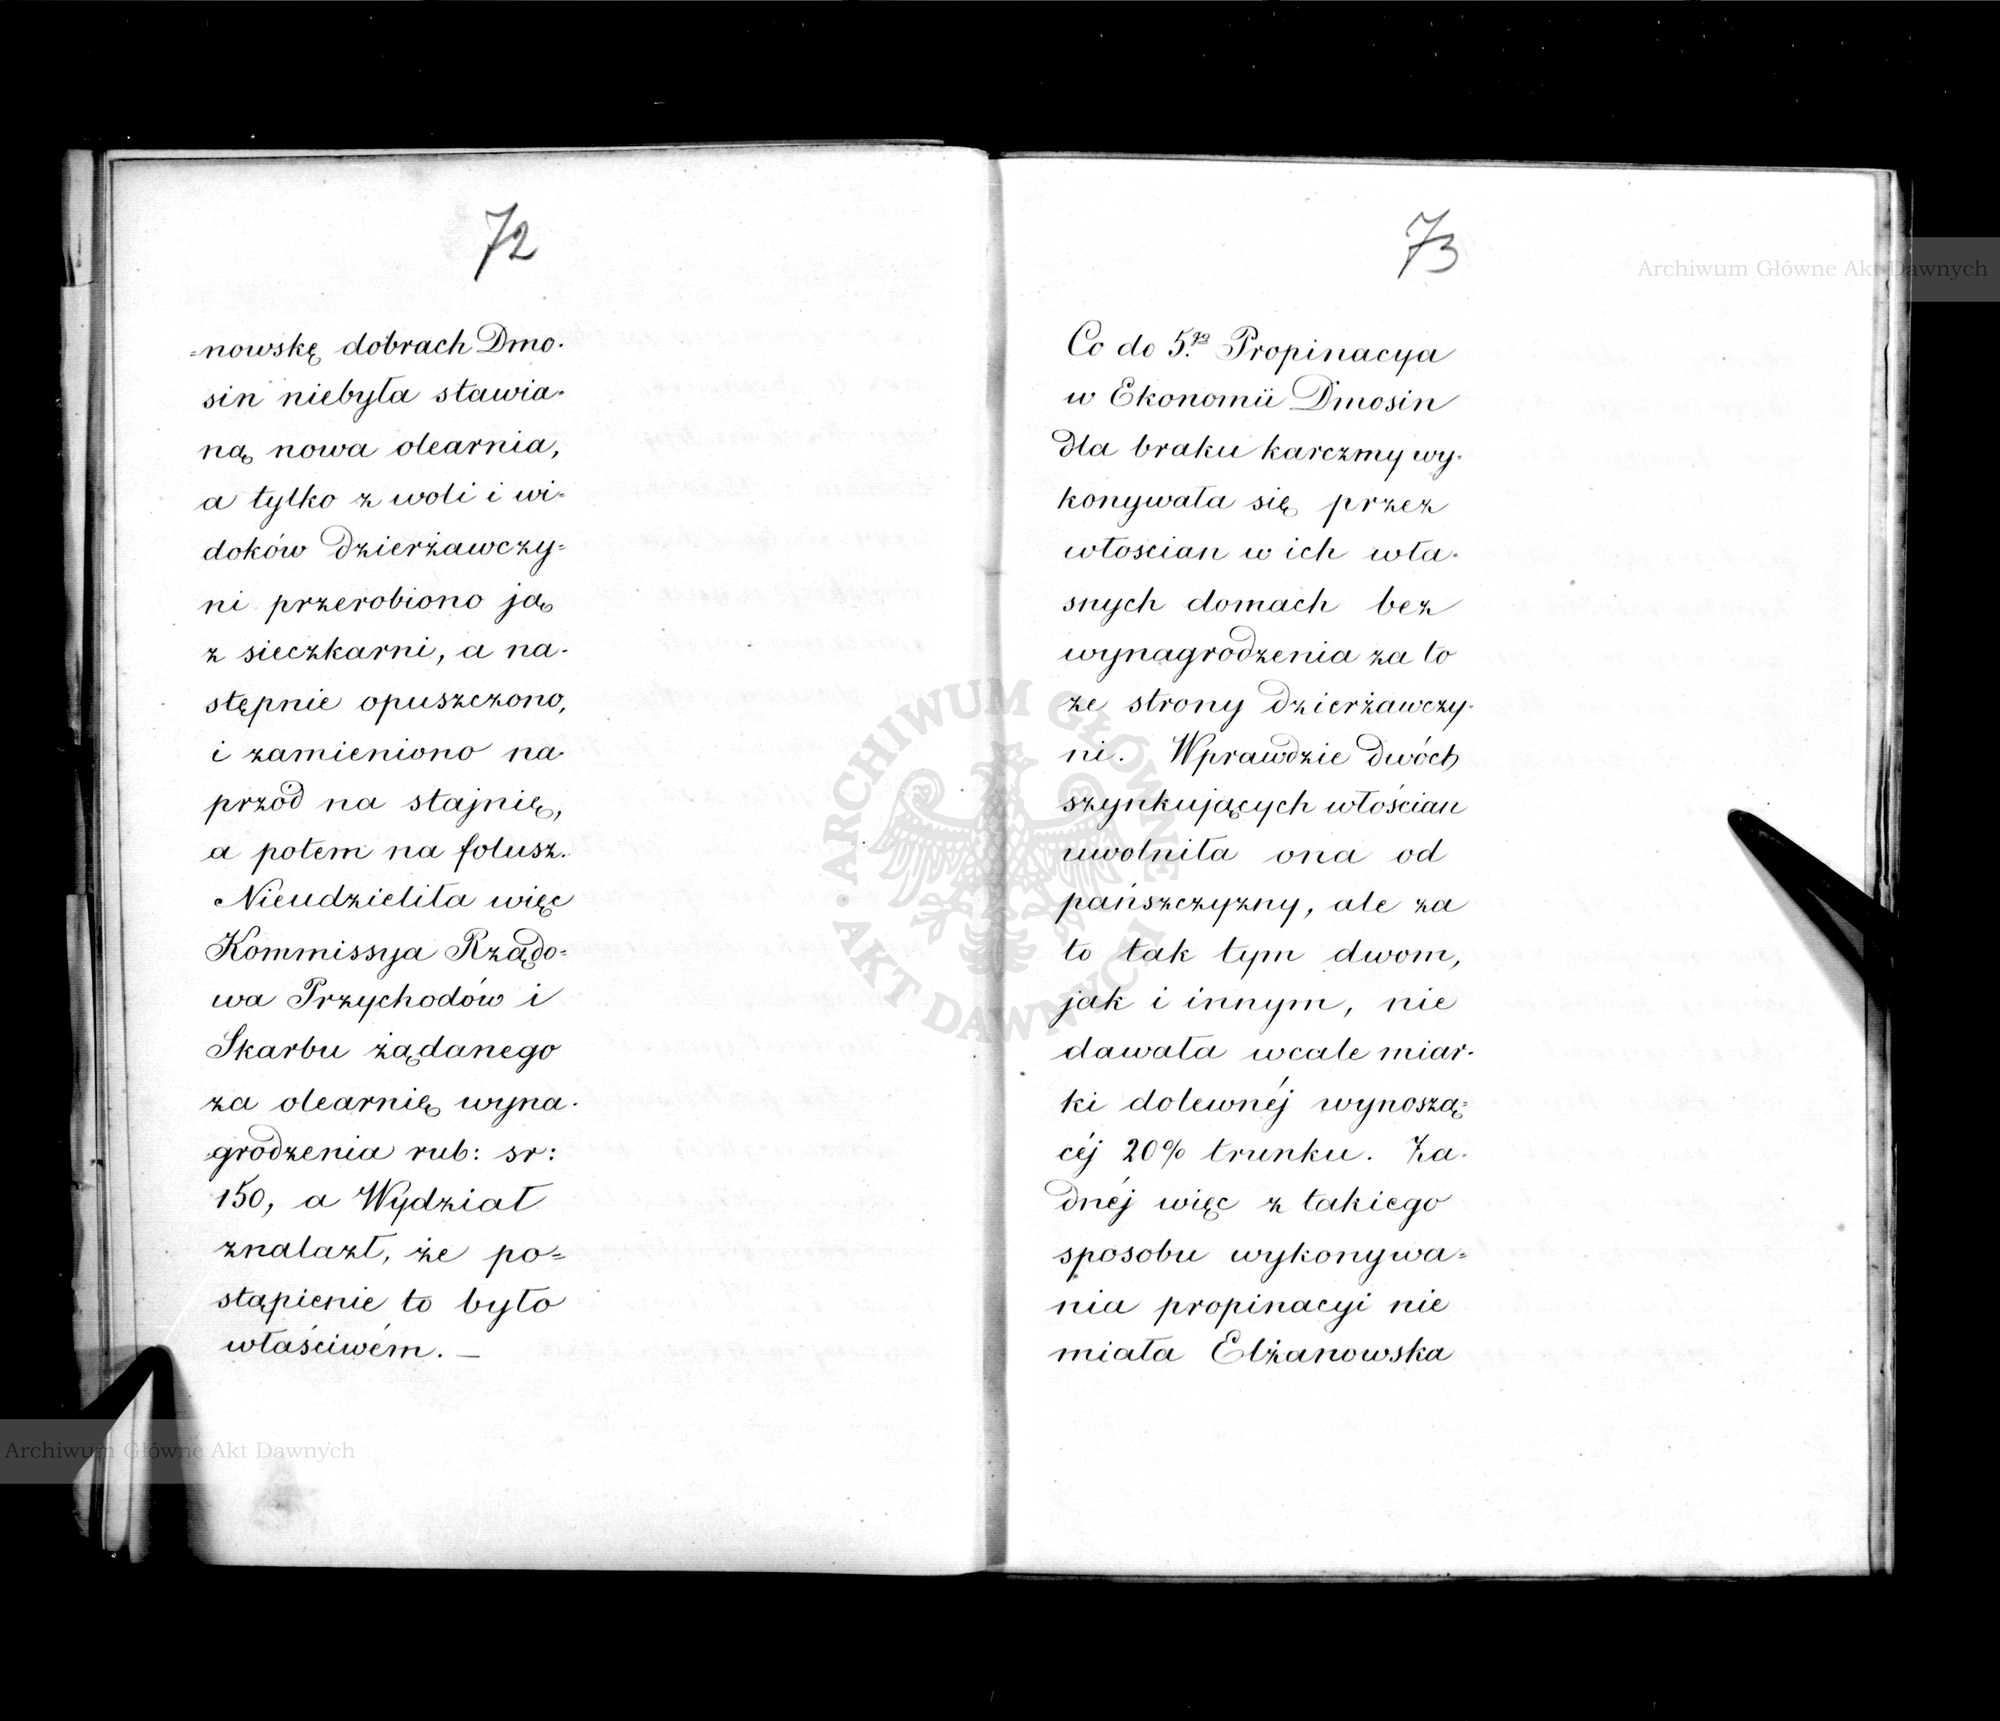 72
=nowskę dobrach Dmo-
sin niebyła stawia-
ną nowa olearnia,
a tylko z woli i wi-
doków dzierżawczy=
ni przerobiono ją
z sieczkarni, a na-
stępnie opuszczono,
i zamieniono na
przód na stajnię,
a potem na folusz.
Nieudzieliła więc
Kommissya Rządo=
wa Przychodów i
Skarbu żądanego
za olearnię wyna-
grodzenia rub: sr:
150, a Wydział
znalazł, że po=
stąpienie to było
właściwém. —
73
Co do 5.go Propinacya
w Ekonomii Dmosin
dla braku karczmy wy-
konywała się przez
włoscian w ich wła-
snych domach bez
wynagrodzenia za to
ze strony dzierżawczy-
ni. Wprawdzie dwóch
szynkujących włościan
uwolniła ona od
pańszczyzny, ale za
to tak tym dwom,
jak i innym, nie
dawała wcale miar-
ki dolewnéj wynoszą=
céj 20% trunku. Ża-
dnéj więc z takiego
sposobu wykonywa=
nia propinacyi nie
miała Elżanowska
Archiwum Główne Akt Dawnych
ARCHIWUM GŁÓWNE AKT DAWNYCH
Archiwum Główne Akt Dawnych